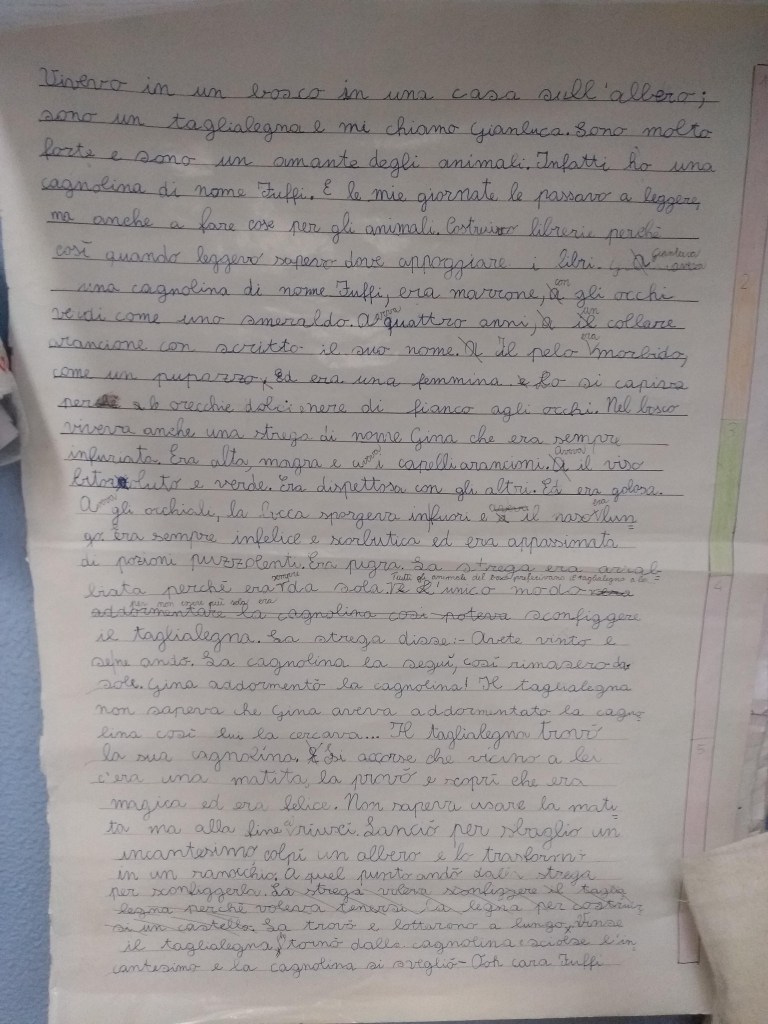 Vivevo in un bosco in una casa sull'albero;
sono un taglialegna e mi chiamo Gianluca. Sono molto
forte e sono un amante degli animali. Infatti ho una
cagnolina di nome Fuffi. E le mie giornate le passavo a leggere,
ma anche a fare cose per gli animali. Costruivo librerie perchè
così quando leggevo sapevo dove appoggiare i libri. Gianluca aveva
una cagnolina di nome Fuffi, era marrone, con gli occhi
verdi come uno smeraldo. Aveva quattro anni, un collare
arancione con scritto il suo nome. Il pelo era morbido,
come un pupazzo. Ed era una femmina. Lo si capiva
per le orecchie dolci, nere di fianco agli occhi. Nel bosco
viveva anche una strega di nome Gina che era sempre
infuriata. Era alta, magra e con i capelli arancioni. Aveva il viso
brufoluto e verde. Era dispettosa con gli altri. Ed era golosa.
Aveva gli occhiali, la bocca sporgeva infuori e il naso era lun
go. Era sempre infelice e scorbutica ed era appassionata
di pozioni puzzolenti. Era pigra. La strega era arrab
biata perchè era sempre da sola. Tutti gli animali del bosco preferivano il taglialegna a lei. L'unico modo
per non essere più sola era sconfiggere
il taglialegna. La strega disse:- Avete vinto e
se ne andò. La cagnolina la seguì, così rimasero da
sole. Gina addormentò la cagnolina! Il taglialegna
non sapeva che Gina aveva addormentato la cagno=
lina così lui la cercava... Il taglialegna trovò
la sua cagnolina. Si accorse che vicino a lei
c'era una matita, la provò e scoprì che era
magica ed era felice. Non sapeva usare la mati=
ta ma alla fine ci riuscì. Lanciò per sbaglio un
incantesimo, colpì un albero e lo trasformò
in un ranocchio. A quel punto andò dalla strega
per sconfiggerla. La strega voleva sconfiggere il taglia
legna perchè voleva tenersi la legna per costruir=
si un castello. La trovò e lottarono a lungo. Vinse
il taglialegna, tornò dalla cagnolina sciolse l'in=
cantesimo e la cagnolina si svegliò - Ooh cara Fuffi